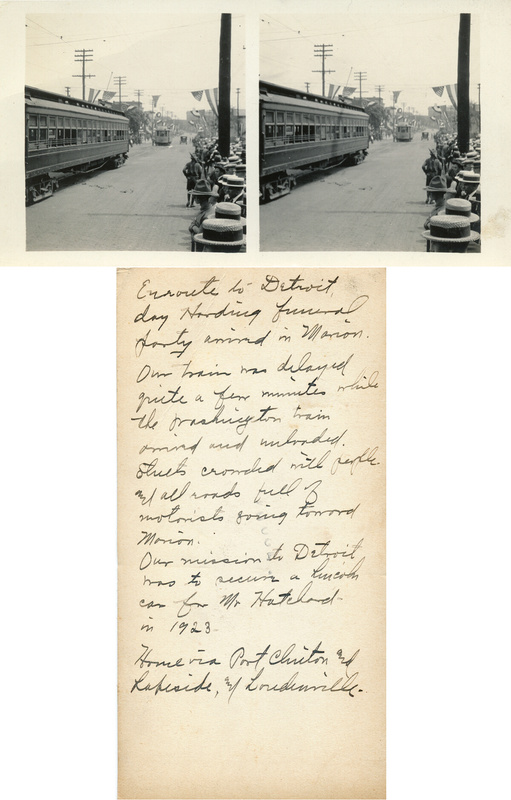 Enroute to Detroit,
day Harding funeral
party arrived in Marion.
Our train was delayed
quite a few minutes while
the Washington train
arrived and unloaded.
Streets crowded with people
and all roads full of
motorists going toward
Marion.
Our mission to Detroit
was to secure a Lincoln
car for Mr Hatchard
in 1923
Home via Port Clinton and
Lakeside, and Loudenville.